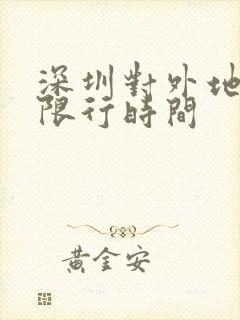 深圳對外地
限行時間
黃金安